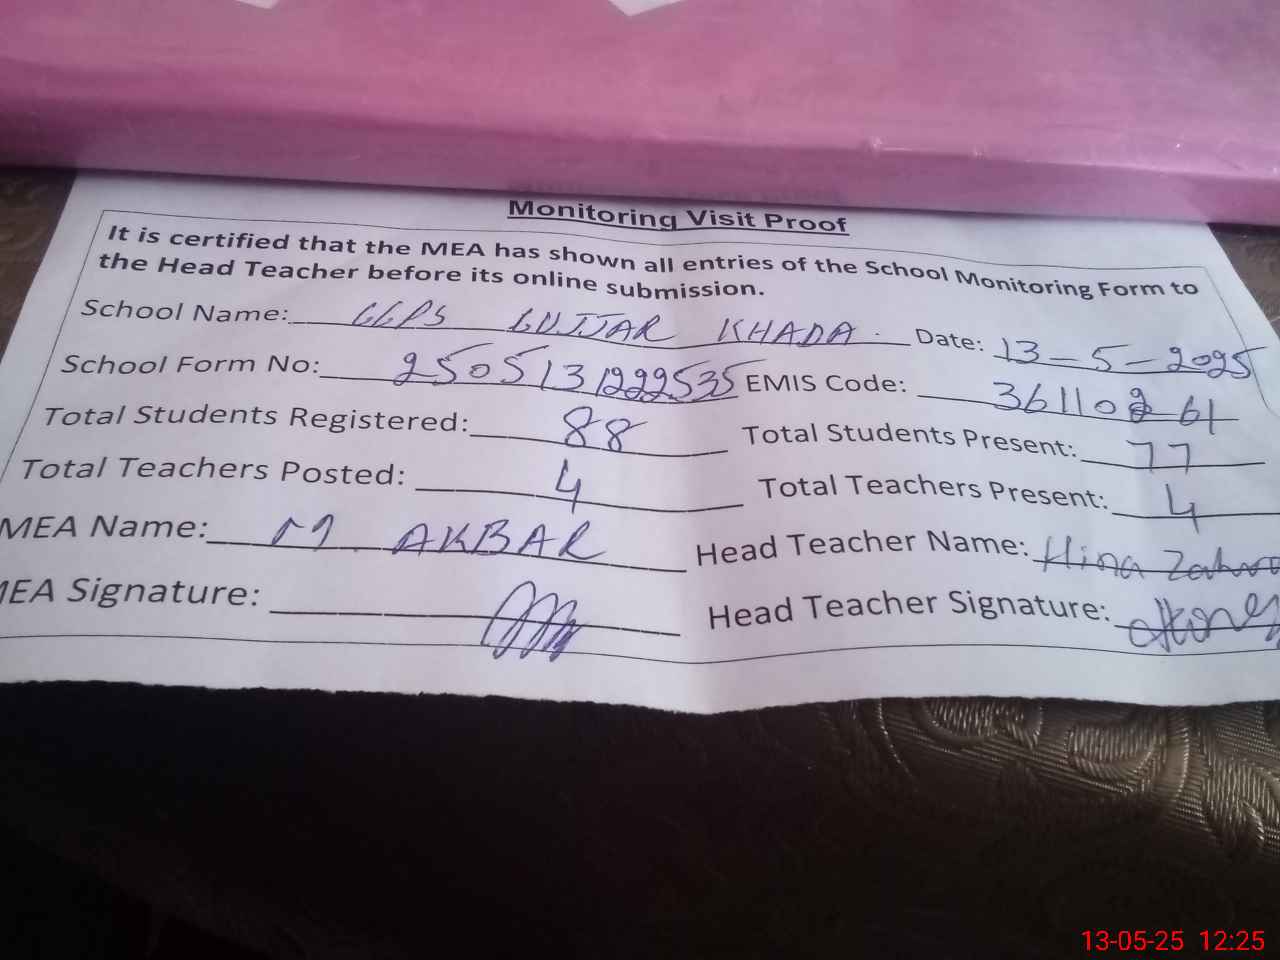 Monitoring Visit Proof
It is certified that the MEA has shown all entries of the School Monitoring Form to
the Head Teacher before its online submission.
School Name: GGPS GUJJAR KHADA. Date: 13-5-2025
School Form No: 2505131222535 EMIS Code: 36110261
Total Students Registered: 88 Total Students Present: 77
Total Teachers Posted: 4 Total Teachers Present: 4
MEA Name: M. AKBAR Head Teacher Name: Hina Zahra
MEA Signature: Head Teacher Signature:
13-05-25 12:25